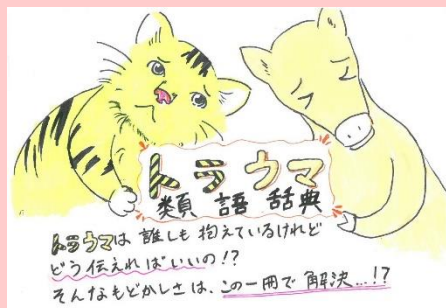 トラウマ
類語辞典
トラウマは 誰しも抱えているけれど
どう伝えればいいの!?
そんなもどかしさは、この一冊で解決…!?